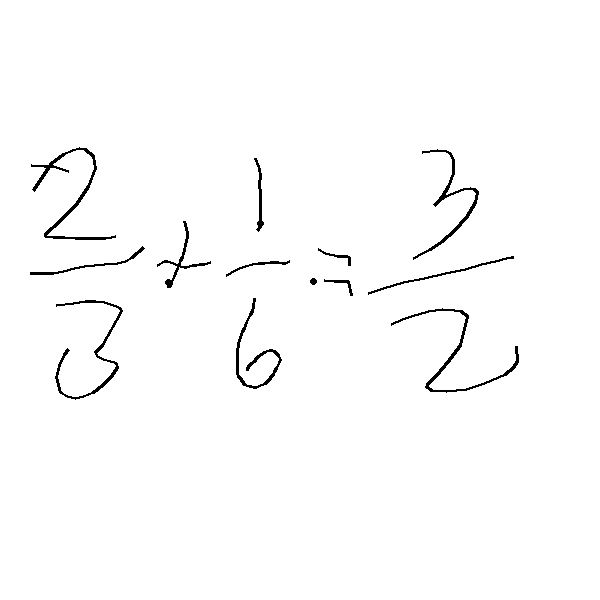 2/3 + 1/6 = 3/2